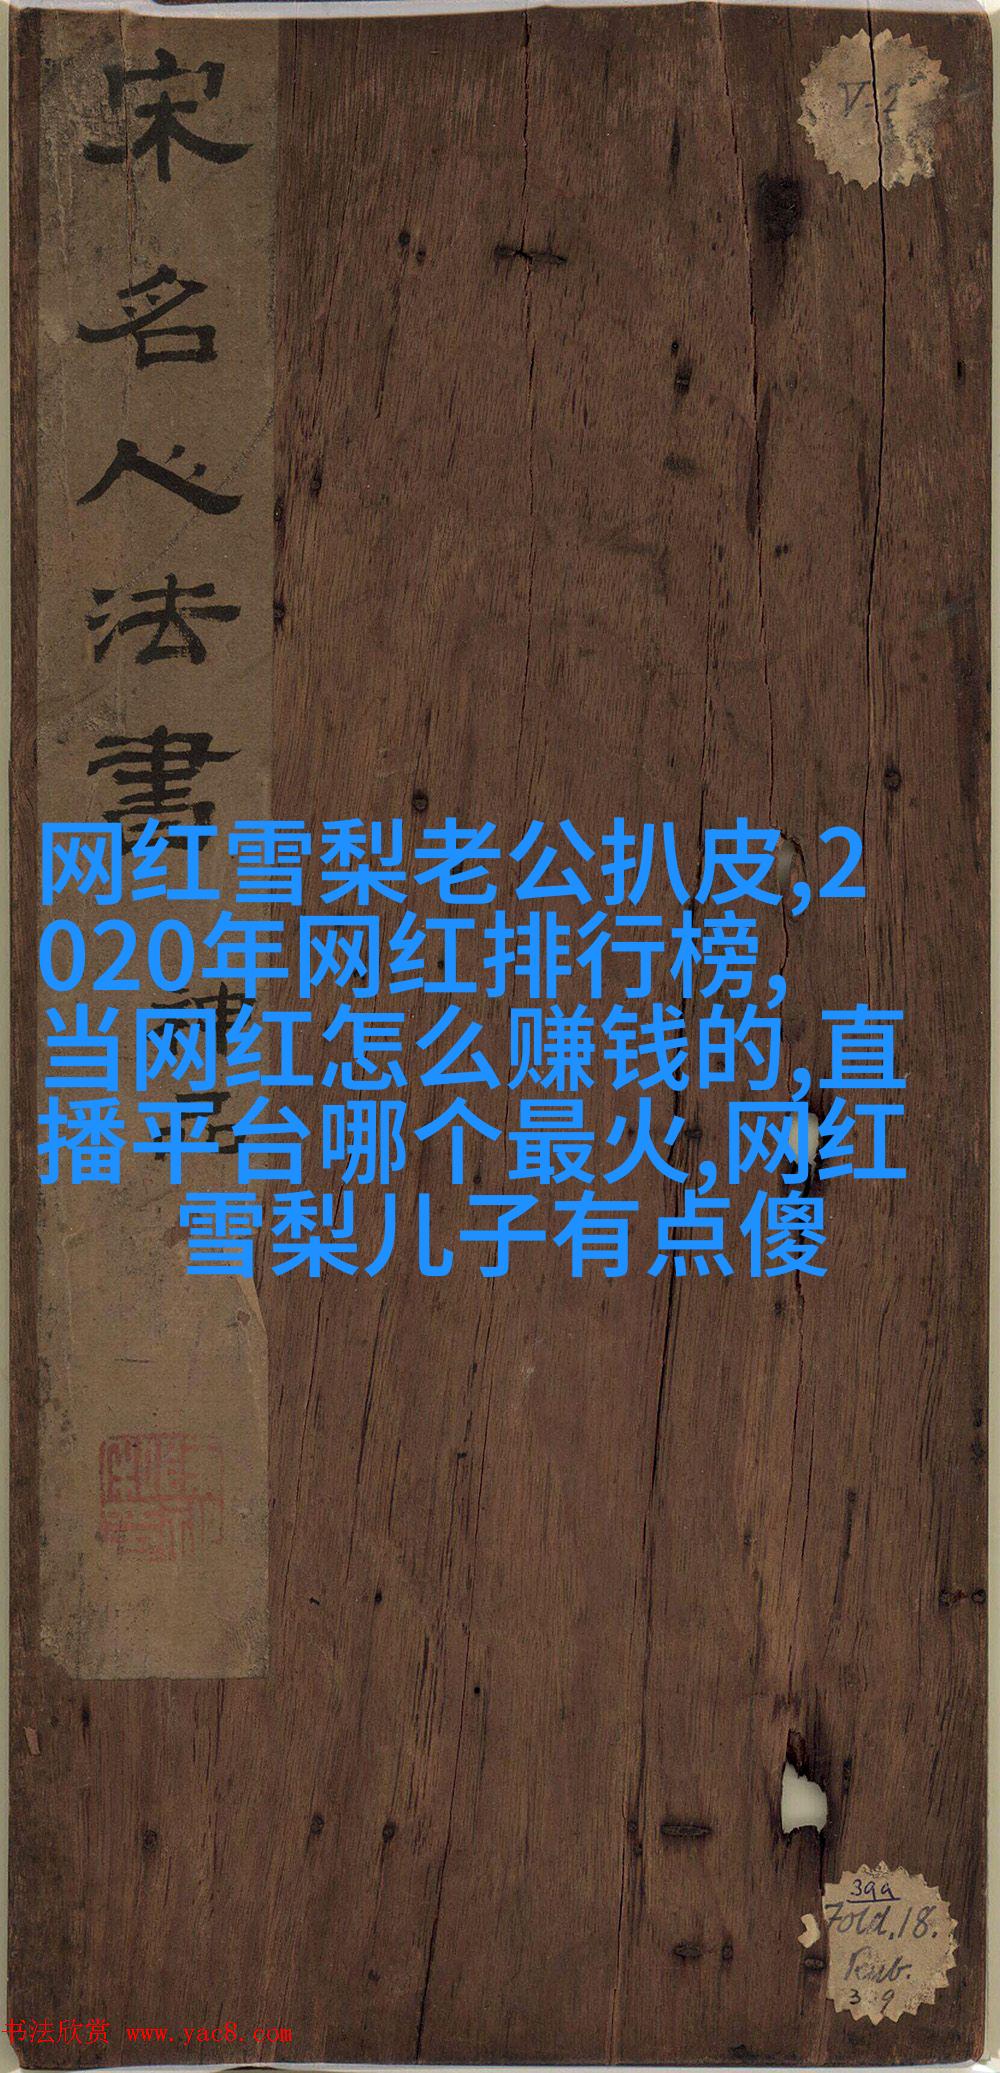 宋名心法書神品
V-2
网红雪梨老公扒皮,2
020年网红排行榜,
当网红怎么赚钱的,直
播平台哪个最火,网红
雪梨儿子有点傻
399
Fold.18.
Rub.
书法欣赏 www.yac8.com